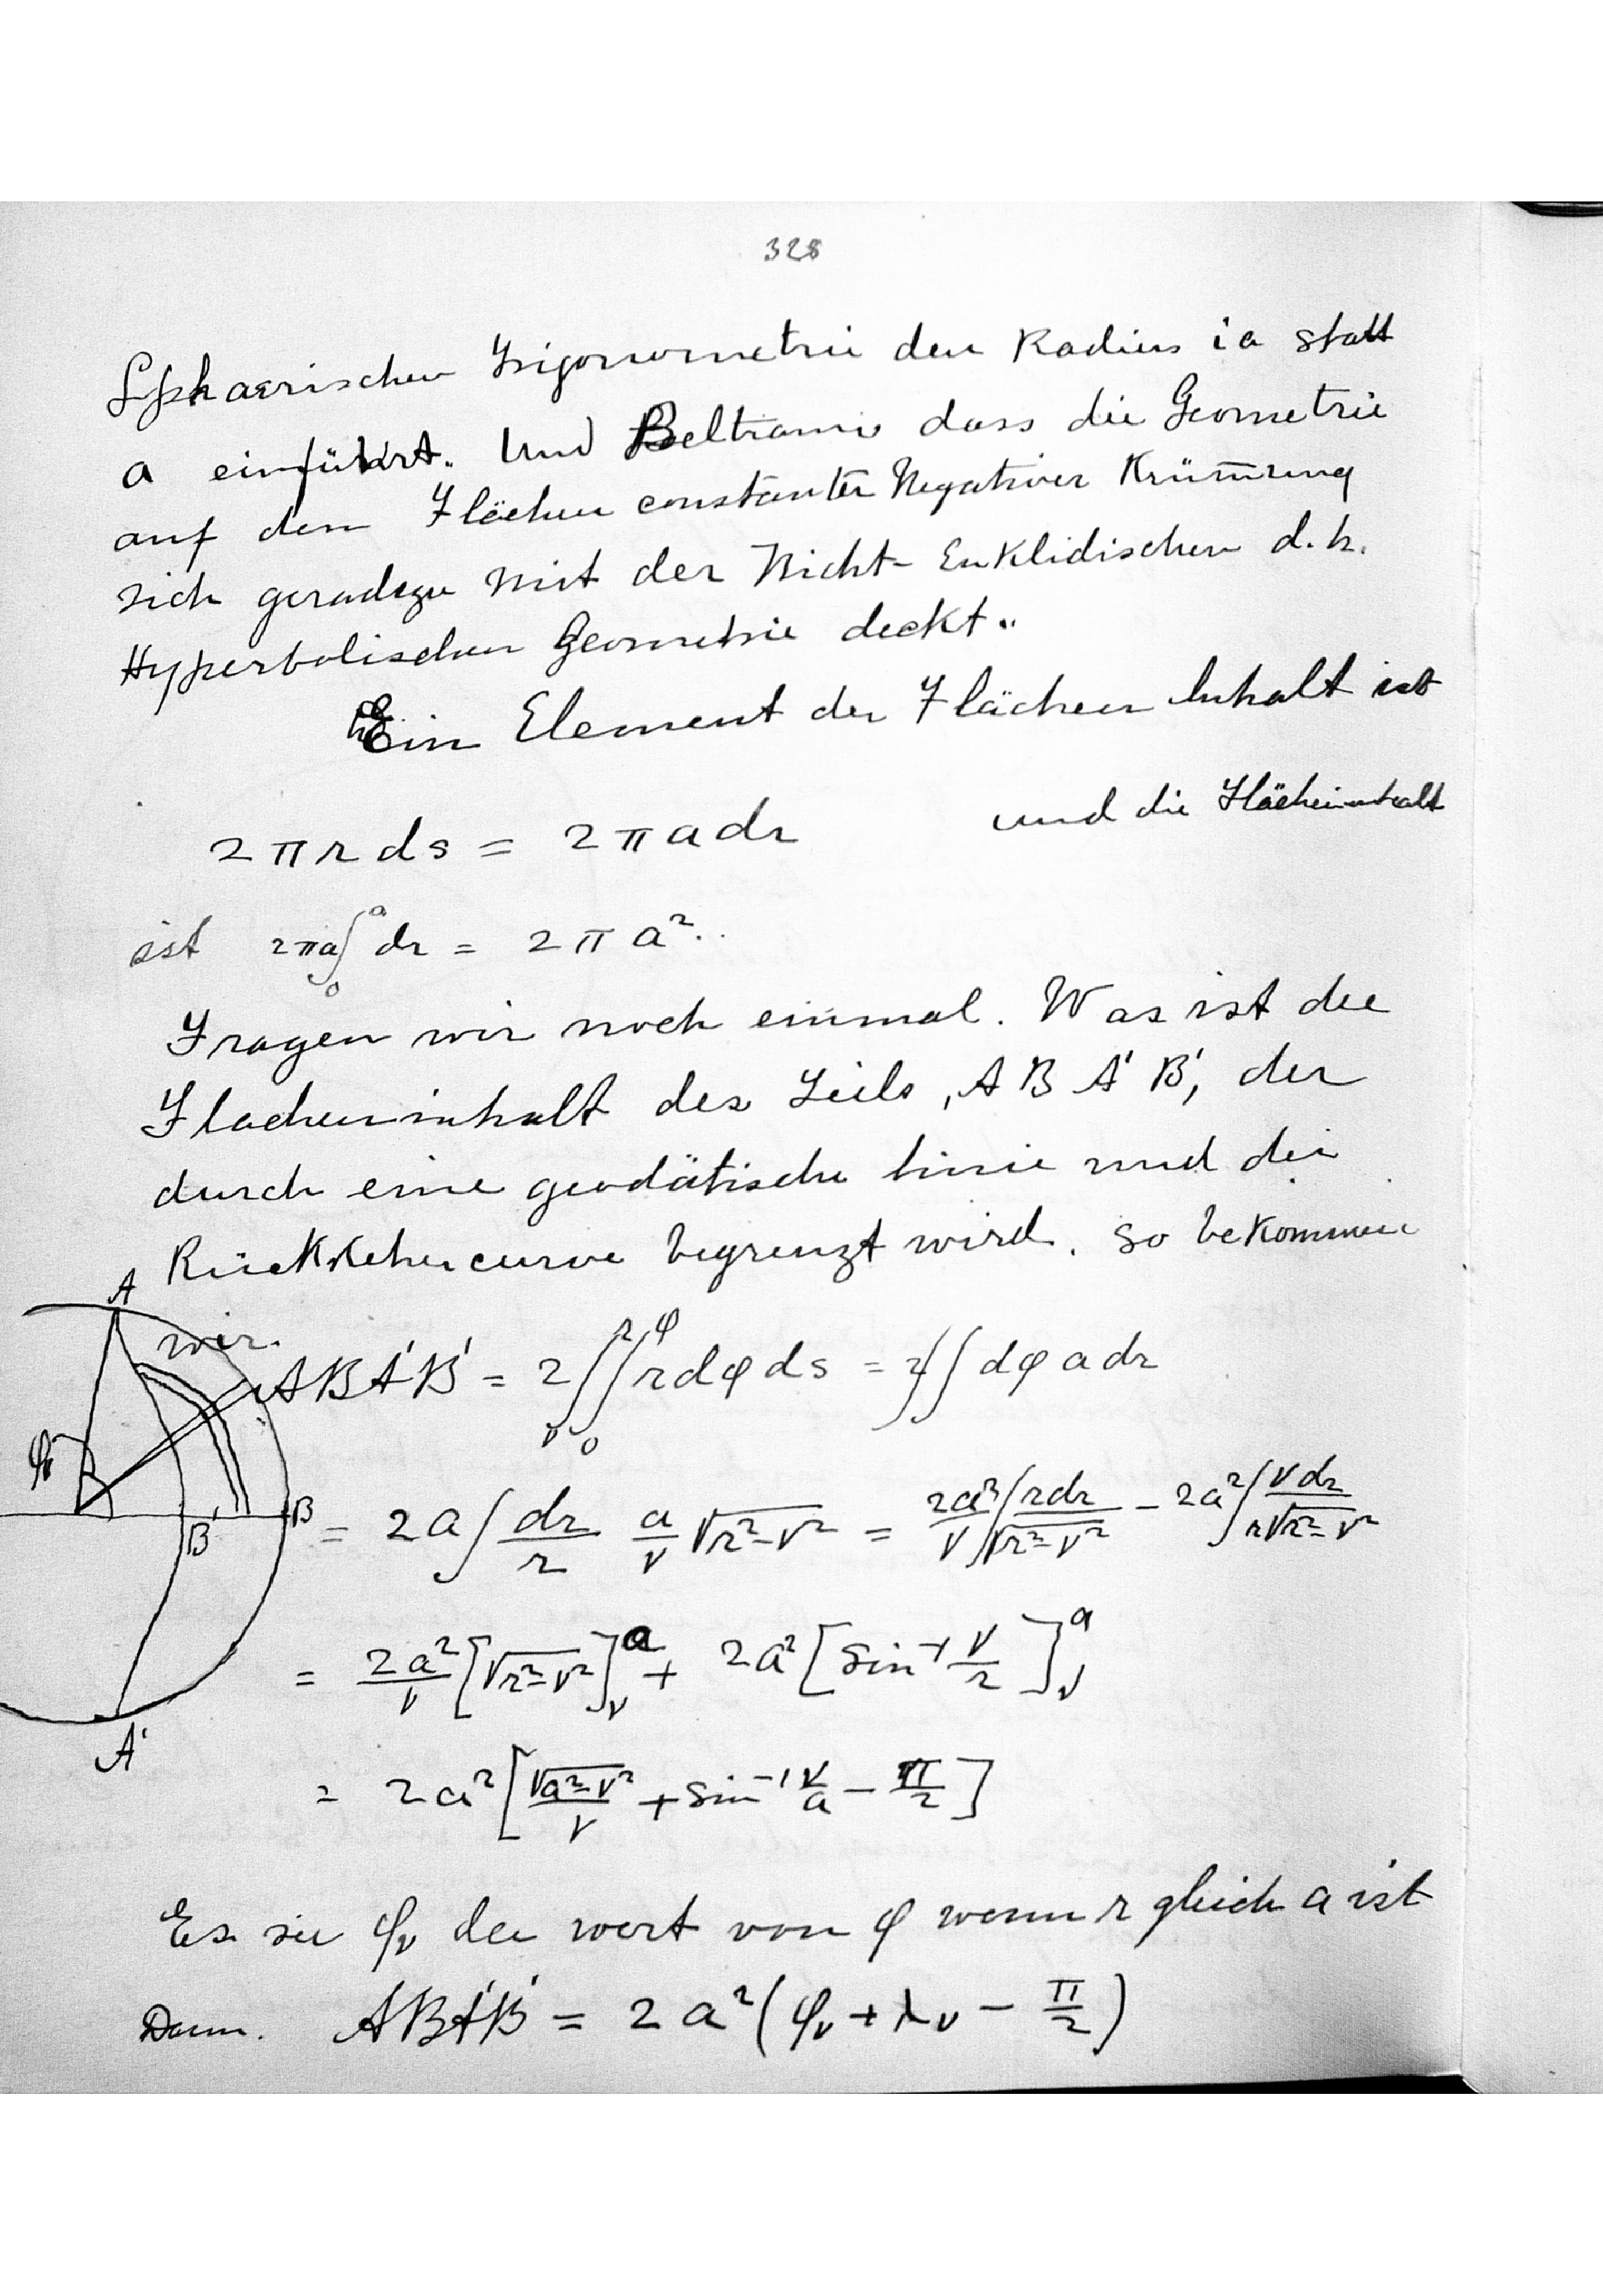 328
Sphaerischen Trigonometrie den Radius ia statt
a einführt. Und Beltrami dass die Geometrie
auf den Flächen constanter Negativer Krümmung
sich geradezu mit der Nicht-Euklidischen d.h.
Hyperbolischen Geometrie deckt.
Ein Element der Flächen Inhalt ist
2πr ds = 2πa dr und die Flächeninhalt
ist 2πa ∫₀ᵃ dr = 2πa².
Fragen wir noch einmal. Was ist die
Flacheninhalt des Teils, A B A' B', der
durch eine geodätische Linie und die
Rückkehrcurve begrenzt wird. So bekommen
A
wir
ABA'B' = 2∫∫ r dφ ds = 2∫∫ dφ a dr
φν
B
B'
= 2a ∫ dr/r a/ν √(r²-ν²) = 2a²/ν ∫ r dr/√(r²-ν²) - 2a² ∫ ν dr/(r√(r²-ν²))
= 2a²/ν [√(r²-ν²)]ᵃᵥ + 2a² [sin⁻¹ ν/r]ᵃᵥ
A'
= 2a² [√(a²-ν²)/ν + sin⁻¹ ν/a - π/2]
Es sei φν der wert von φ wenn r gleich a ist
Dann. ABA'B' = 2a² (φν + λν - π/2)